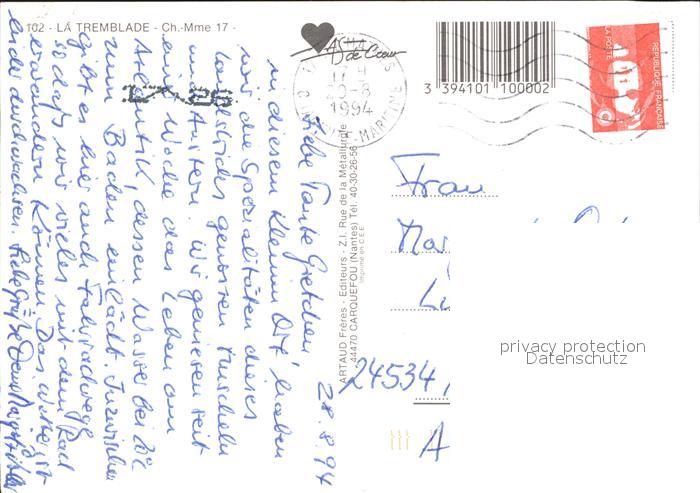 102 - LA TREMBLADE - Ch.-Mme 17 -
As de Cœur
17 H
20-8
1994
CHARENTE-MARITIME
3 394101 100002
RÉPUBLIQUE FRANÇAISE
LA POSTE
28.8.94
Liebe Tante Gretchen!
in diesem kleinen Ort haben
wir die Spezialitäten dieses
Landstriches genossen Muscheln
und Austern. Wir genießen seit
einer Woche das Leben am
Atlantik, dessen Wasser bei 20°C
zum Baden einlädt. Inzwischen
gibt es hier auch Fahrradwege
so daß wir vieles mit dem Rad
erwandern können. Das Wetter ist
leider durchwachsen. Liebe Grüße Deine
ARTAUD Frères - Editeurs - Z.I. Rue de la Métallurgie
44470 CARQUEFOU (Nantes) Tél. 40-30-26-56
Imprimé en C.E.E.
Frau
Mar
Lu
24534
A
privacy protection
Datenschutz